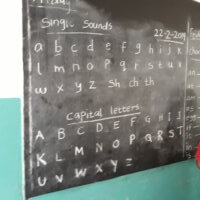 Friday
Single Sounds
22-2-2019
a b c d e f g h i j k
l m n o p q r s t u v
w x y z sh ch th
Capital letters
A B C D E F G H I J
K L M N O P Q R S T
U V W X Y Z